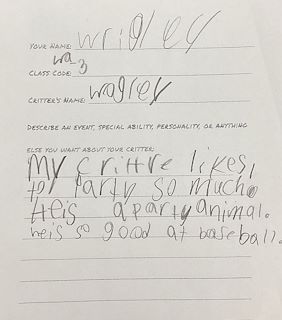 YOUR NAME: wrigley
CLASS CODE: wa_3
CRITTER'S NAME: wagley
DESCRIBE AN EVENT, SPECIAL ABILITY, PERSONALITY, OR ANYTHING
ELSE YOU WANT ABOUT YOUR CRITTER:
My crittre likes,
to party so much.
Heis a party animal.
heis so good at baseball.